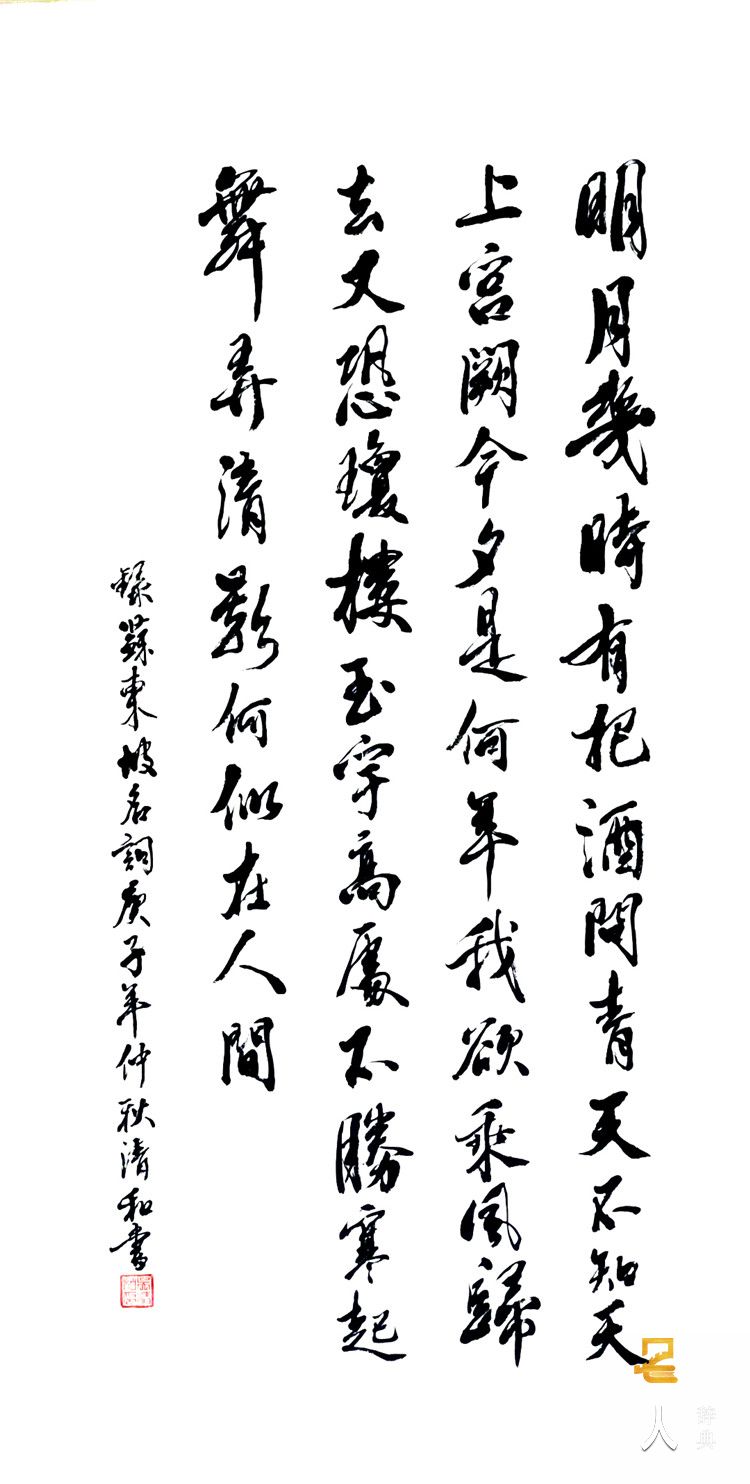 明月幾時有把酒問青天不知天
上宮闕今夕是何年我欲乘風歸
去又恐瓊樓玉宇高處不勝寒起
舞弄清影何似在人間
錄蘇東坡名詞庚子年仲秋清和書
名人
辞典